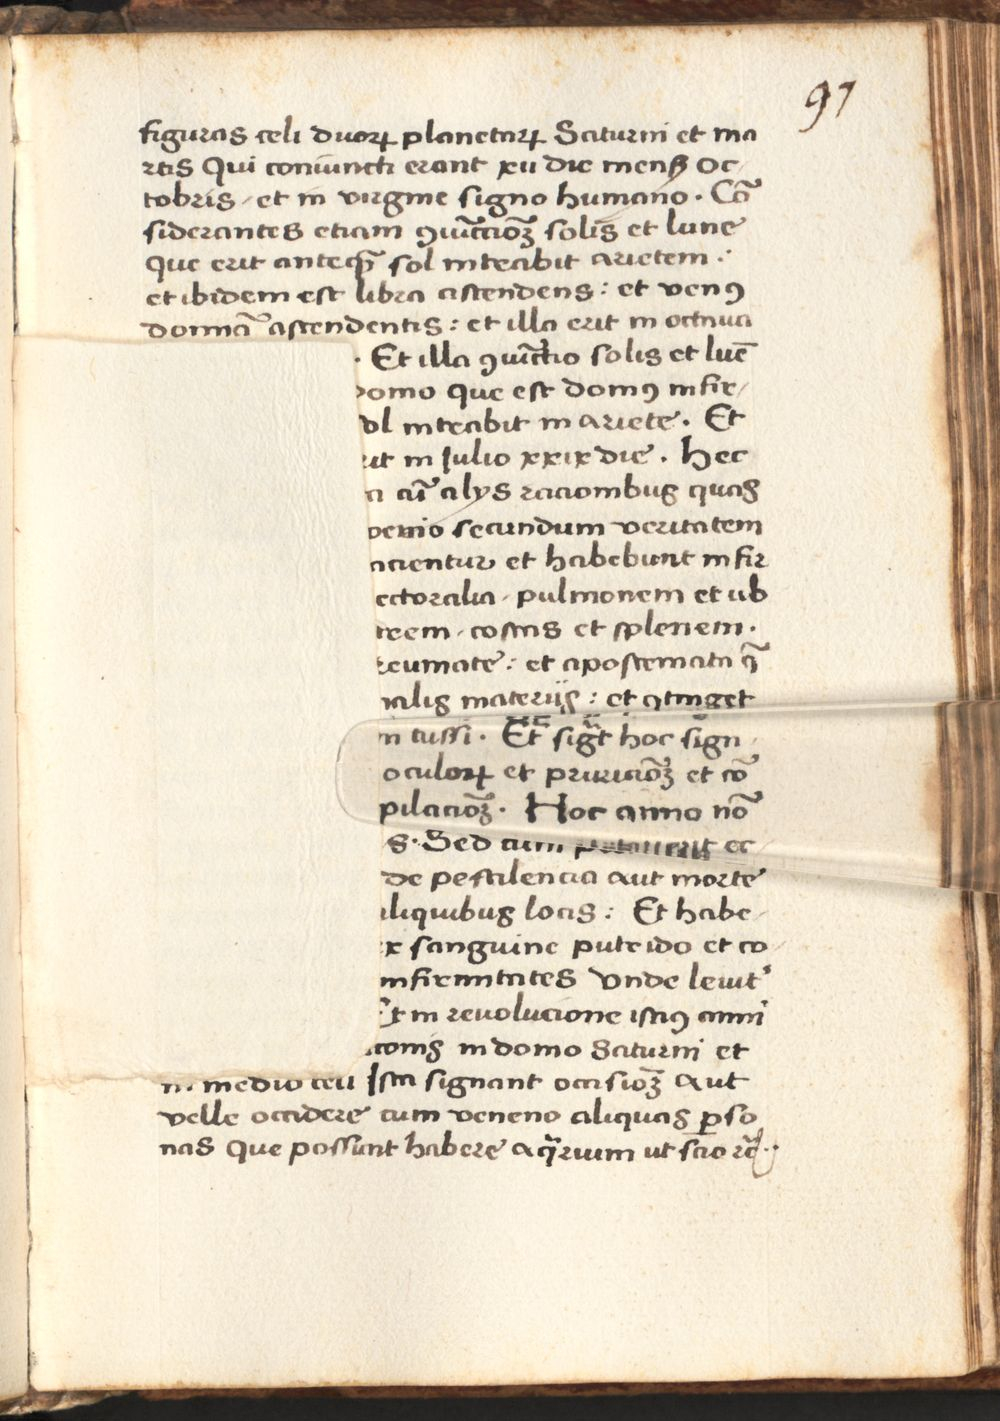 97
figuras celi duoꝝ planetaꝝ Saturni et ma
rtis Qui coniuncti erant xii die mensꝭ Oc
tobris et in virgine signo humano. Cō
siderantes etiam ꝯiūccioꝫ solis et lune
Que erit anteqꝫ sol intrabit arietem.
et ibidem est libra ascendens: et venꝯ
domīa ascendentis: et illa erit in octaua
. Et illa ꝯiūctio solis et luē
domo que est domꝯ infir
ol intrabit in ariete. Et
rit in Julio xxix die. Hec
a cū alys racionibus quas
venio secundum veritatem
acientur et habebunt infir
ectoralia pulmonem et ub
trem costas et splenem.
reumate: et apostemata q̄
malis materiis: et ꝯtinget
n tussi. Et sigt̄ hoc sign
oculoꝝ et pruricioꝫ et cō
pilacioꝫ. Hoc anno nō
s. Sed cum ec
de pestilencia aut morte
aliquibus locis: Et habe
x sanguine putrido et co
infirmitates Vnde leuit᾽
Et in reuolucione istiꝯ anni
conis in domo Saturni et
in medio celi Ista signant occisioꝫ Aut
velle occidere cum veneno aliquas ꝑso
nas Que possunt habere